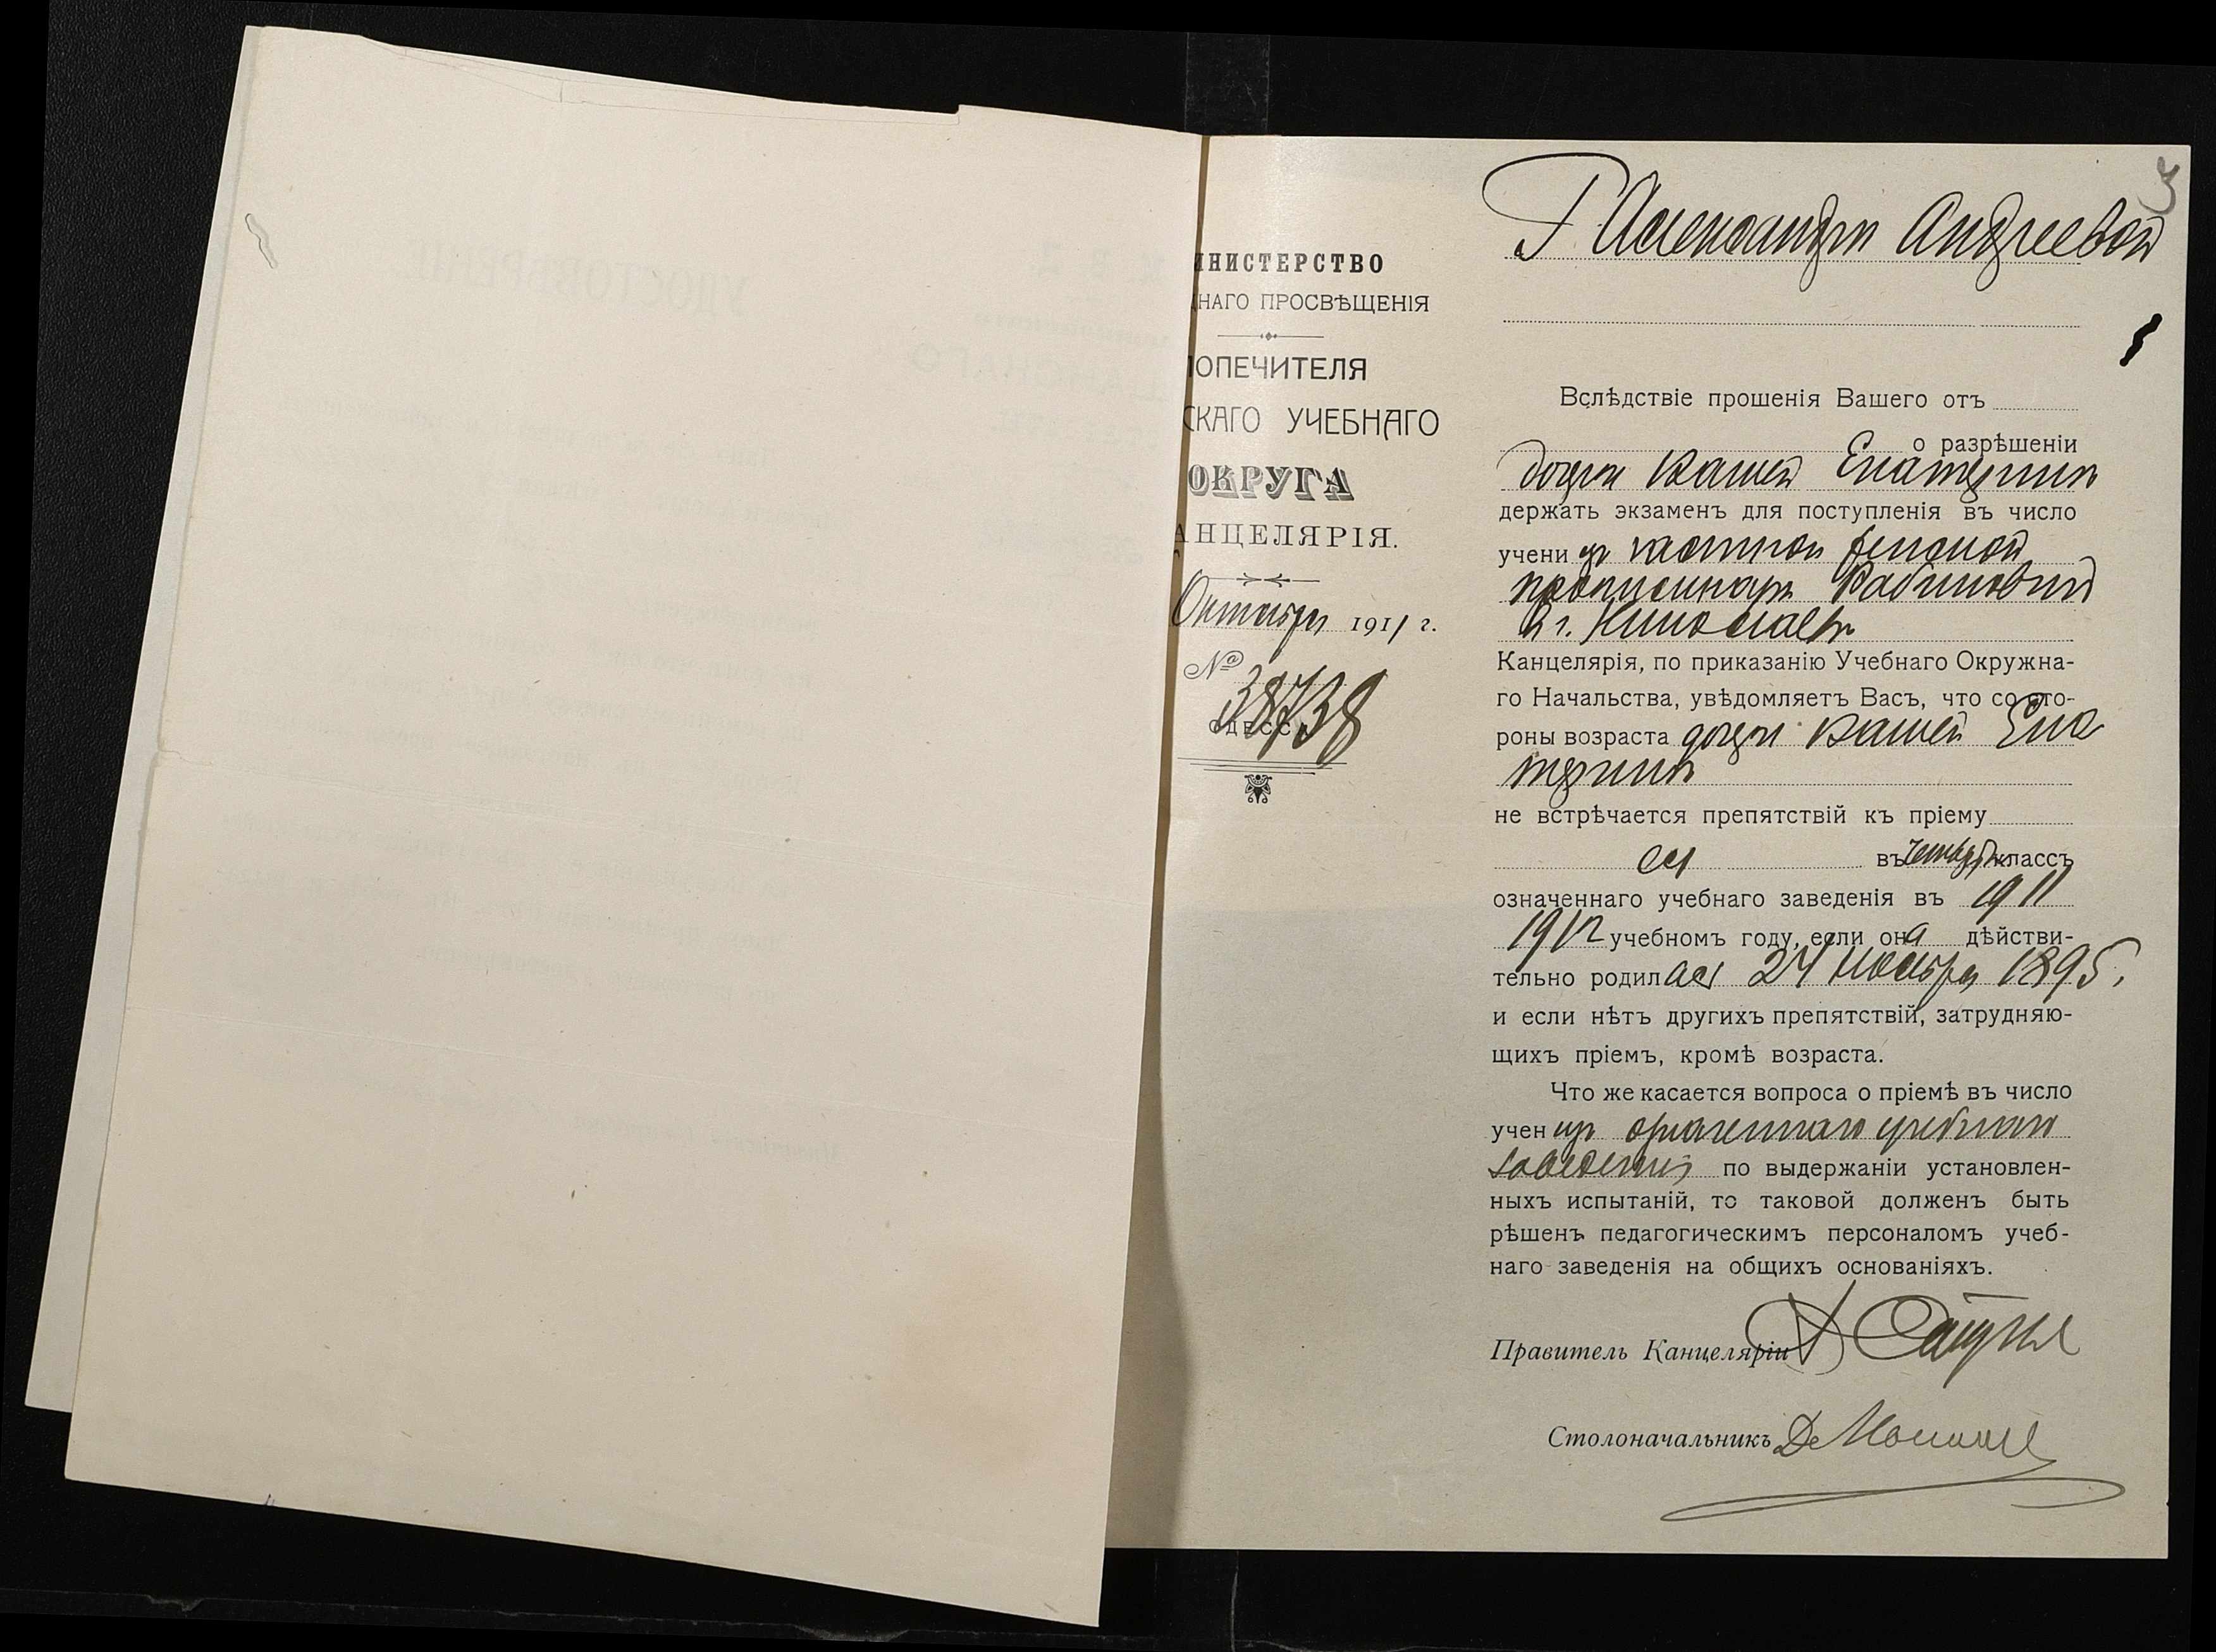 ИНИСТЕРСТВО
НАГО ПРОСВѢЩЕНІЯ
ПОПЕЧИТЕЛЯ
СКАГО УЧЕБНАГО
ОКРУГА
АНЦЕЛЯРІЯ.
Октября 1911 г.
№ 38738
ОДЕССА
3
Г Александрѣ Андреевой
Вслѣдствіе прошенія Вашего отъ
о разрѣшеніи
дочери Вашей Екатеринѣ
держать экзаменъ для поступленія въ число
учени цъ частной женской
прогимназіи
въ г. Кишиневѣ
Канцелярія, по приказанію Учебнаго Окружна-
го Начальства, увѣдомляетъ Васъ, что со сто-
роны возраста дочери Вашей Ека
теринѣ
не встрѣчается препятствій къ пріему
ея въ четвертый классъ
означеннаго учебнаго заведенія въ 1911
1912 учебномъ году, если она дѣйстви-
тельно родилась 24 ноября 1895.
и если нѣтъ другихъ препятствій, затрудняю-
щихъ пріемъ, кромѣ возраста.
Что же касается вопроса о пріемѣ въ число
учен ицъ означеннаго учебнаго
заведенія по выдержаніи установлен-
ныхъ испытаній, то таковой долженъ быть
рѣшенъ педагогическимъ персоналомъ учеб-
наго заведенія на общихъ основаніяхъ.
Правитель Канцеляріи
Столоначальникъ